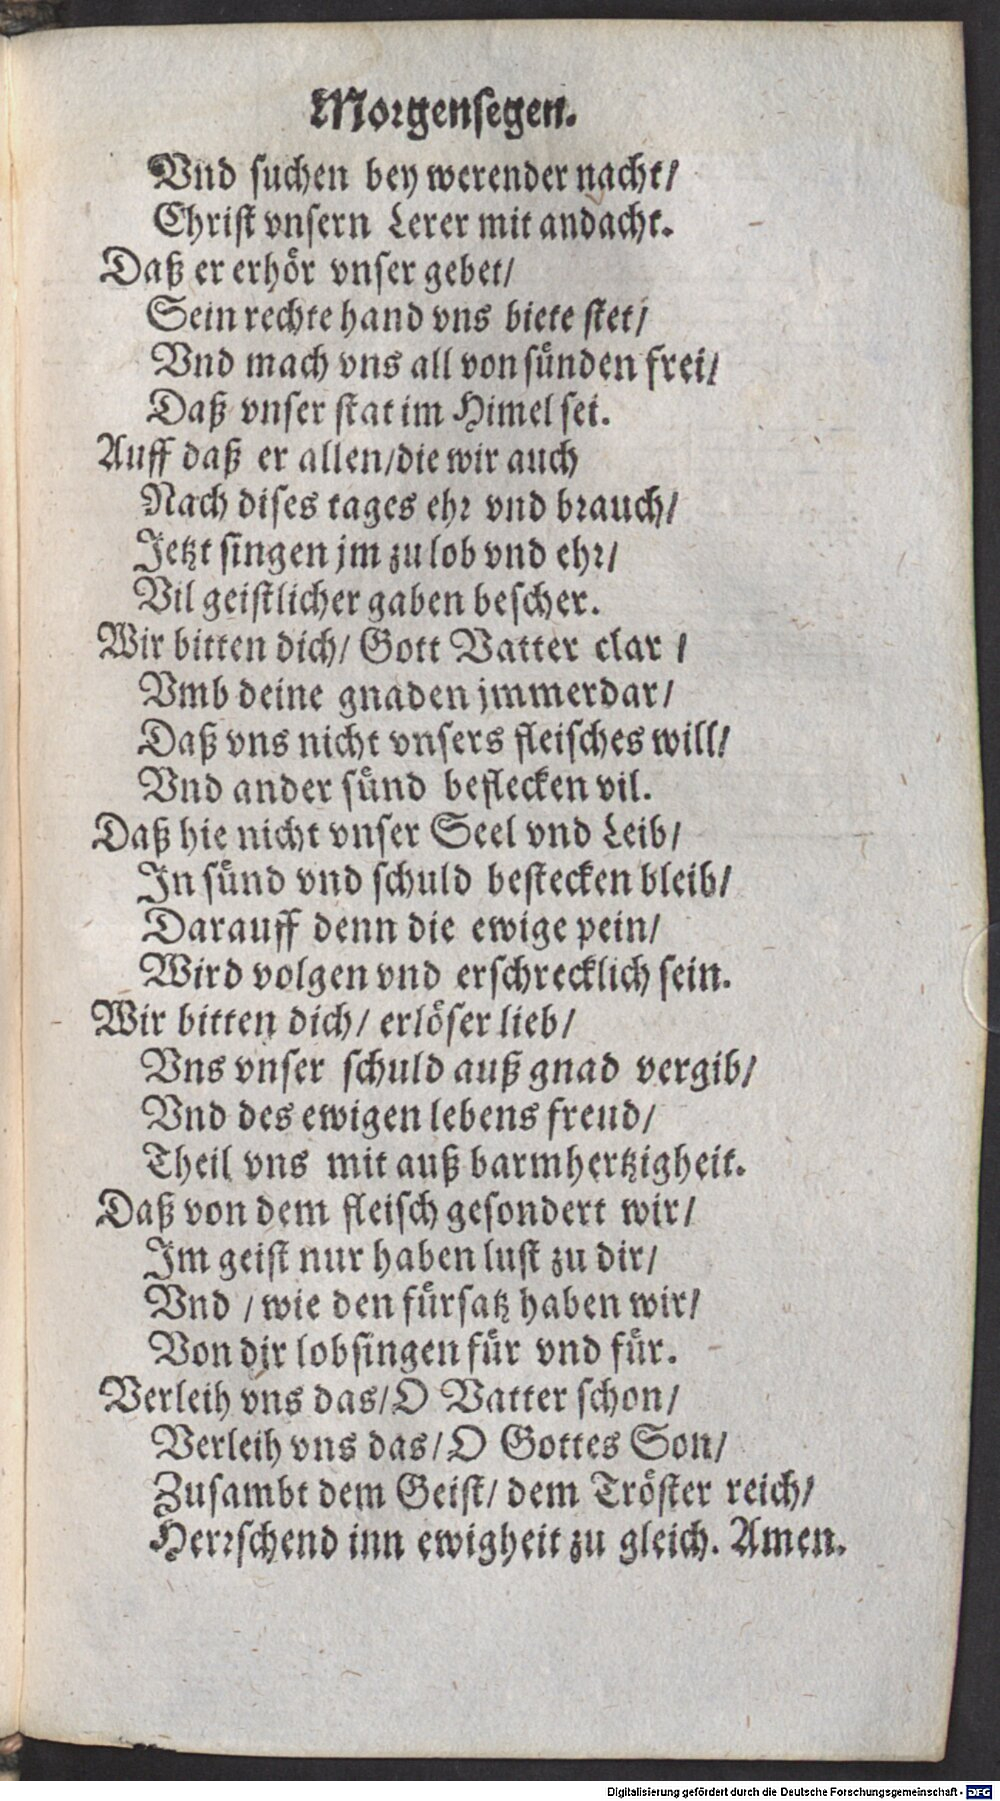 Morgensegen.
Vnd suchen bey werender nacht/
Christ vnsern Lerer mit andacht.
Daß er erhör vnser gebet/
Sein rechte hand vns biete stet/
Vnd mach vns all von sünden frei/
Daß vnser stat im Himel sei.
Auff daß er allen/die wir auch
Nach dises tages ehr vnd brauch/
Jetzt singen jm zu lob vnd ehr/
Vil geistlicher gaben bescher.
Wir bitten dich/ Gott Vatter clar /
Vmb deine gnaden jmmerdar/
Daß vns nicht vnsers fleisches will/
Vnd ander sünd beflecken vil.
Daß hie nicht vnser Seel vnd Leib/
In sünd vnd schuld bestecken bleib/
Darauff denn die ewige pein/
Wird volgen vnd erschrecklich sein.
Wir bitten dich/ erlöser lieb/
Vns vnser schuld auß gnad vergib/
Vnd des ewigen lebens freud/
Theil vns mit auß barmhertzigheit.
Daß von dem fleisch gesondert wir/
Im geist nur haben lust zu dir/
Vnd / wie den fürsatz haben wir/
Von dir lobsingen für vnd für.
Verleih vns das/O Vatter schon/
Verleih vns das/O Gottes Son/
Zusambt dem Geist/ dem Tröster reich/
Herrschend inn ewigheit zu gleich. Amen.
Digitalisierung gefördert durch die Deutsche Forschungsgemeinschaft - DFG